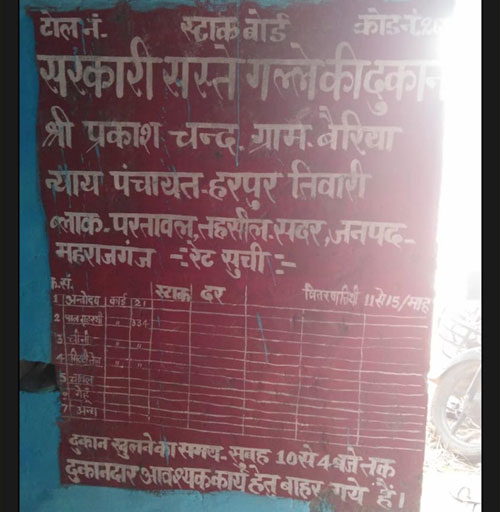 टोल नं. स्टाक बोर्ड कोड नं.
सरकारी सस्ते गल्ले की दुकान
श्री प्रकाश चन्द. ग्राम- बैरिया
न्याय पंचायत-हरपुर तिवारी
ब्लाक- परतावल, तहसील- सदर, जनपद-
महराजगंज -: रेट सुची :-
क्र.सं. स्टाक दर वितरण तिथी 11 से 15/माह
1 अन्तोदय कार्ड 21
2 पात्र गृहस्थी " 334
3 चीनी " "
4 मिट्टी तेल " "
5 चावल
6 गेहूँ
7 अन्य
दुकान खुलने का समय- सुबह 10 से 4 बजे तक
दुकानदार आवश्यक कार्य हेतु बाहर गये हैं।